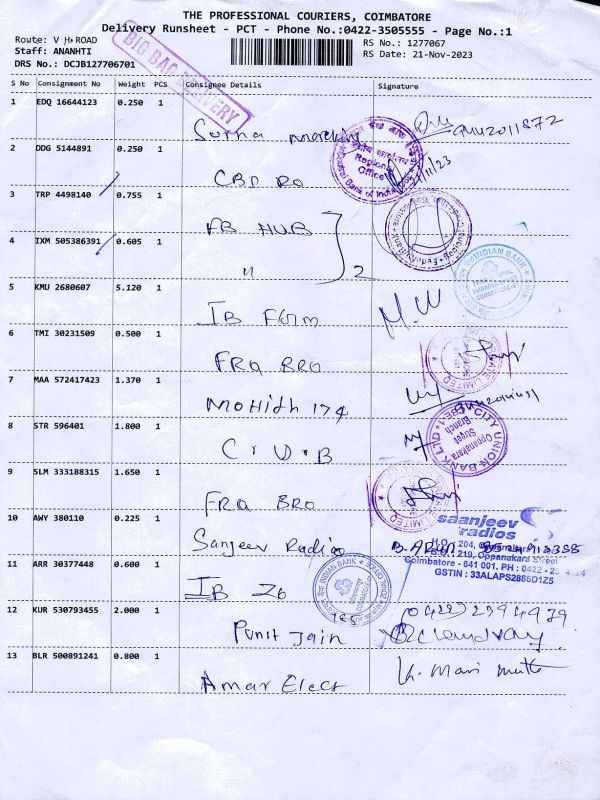 THE PROFESSIONAL COURIERS, COIMBATORE
Delivery Runsheet - PCT - Phone No.:0422-3505555 - Page No.:1
Route: V H ROAD
Staff: ANANHTI
DRS No.: DCJB127706701
RS No.: 1277067
RS Date: 21-Nov-2023
BIG BAG DELIVERY
S No Consignment No Weight PCS Consignee Details Signature
1 EDQ 16644123 0.250 1
2 DDG 5144891 0.250 1 CBI RO
Regional Office
3 TRP 4498140 0.755 1 FB HUB
4 IXM 505386391 0.605 1 " 2
INDIAN BANK
5 KMU 2680607 5.120 1 IB
6 TMI 30231509 0.500 1 FRA BRO
7 MAA 572417423 1.370 1 Mohith 174
8 STR 596401 1.800 1 C U B
CITY UNION BANK LTD
Oppanakara Street Branch
9 SLM 333188315 1.650 1 FRA BRO
10 AWY 380110 0.225 1 Sanjeev Radio
saanjeev radios
H.O : 204,
B.O : 219, Oppanakara Street
Coimbatore - 641 001. PH : 0422 -
GSTIN : 33ALAPS2886D1Z5
11 ARR 30377448 0.600 1 IB Zo
INDIAN BANK
12 KUR 530793455 2.000 1 Punit Jain
13 BLR 500891241 0.800 1 Amar Elect K. Mari